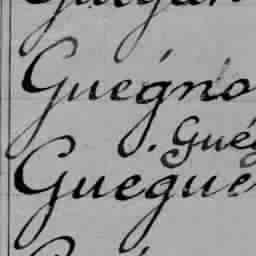 Guégno
. Gué
Guégue